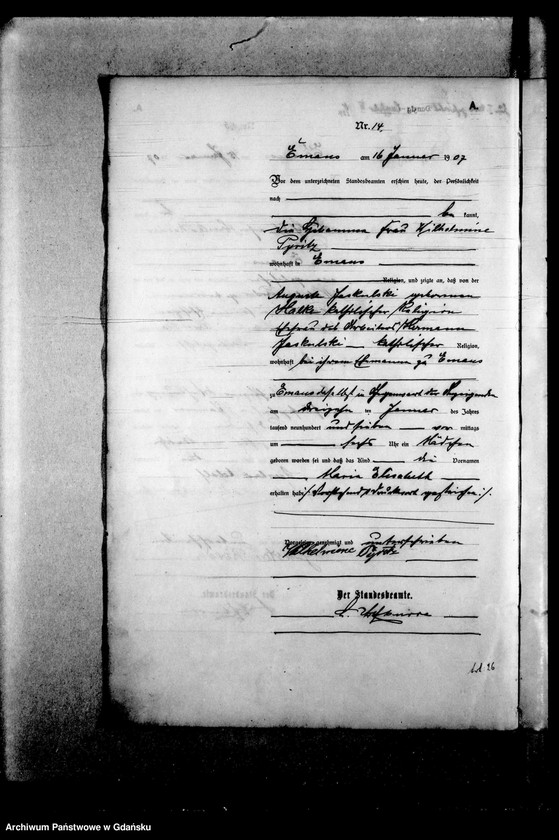 A.
Nr. 14.
Emaus am 16 Januar 1907
Vor dem unterzeichneten Standesbeamten erschien heute, der Persönlichkeit
nach
be kannt,
die Hebamme Frau Wilhelmine
wohnhaft in Emaus
Religion, und zeigte an, daß von der
Auguste Jaskulski geborenen
katholischer Religion
Ehefrau des Arbeiters Hermann
Jaskulski katholischer Religion,
wohnhaft bei ihrem Ehemanne zu Emaus
zu Emaus daselbst in Gegenwart der Anzeigenden
am dreizehn ten Januar des Jahres
tausend neunhundert und sieben vor mittags
um sechs Uhr ein Mädchen
geboren worden sei und daß das Kind die Vornamen
Maria Elisabeth
erhalten habe
Vorgelesen, genehmigt und unterschrieben
Wilhelmine
Der Standesbeamte.
Archiwum Państwowe w Gdańsku